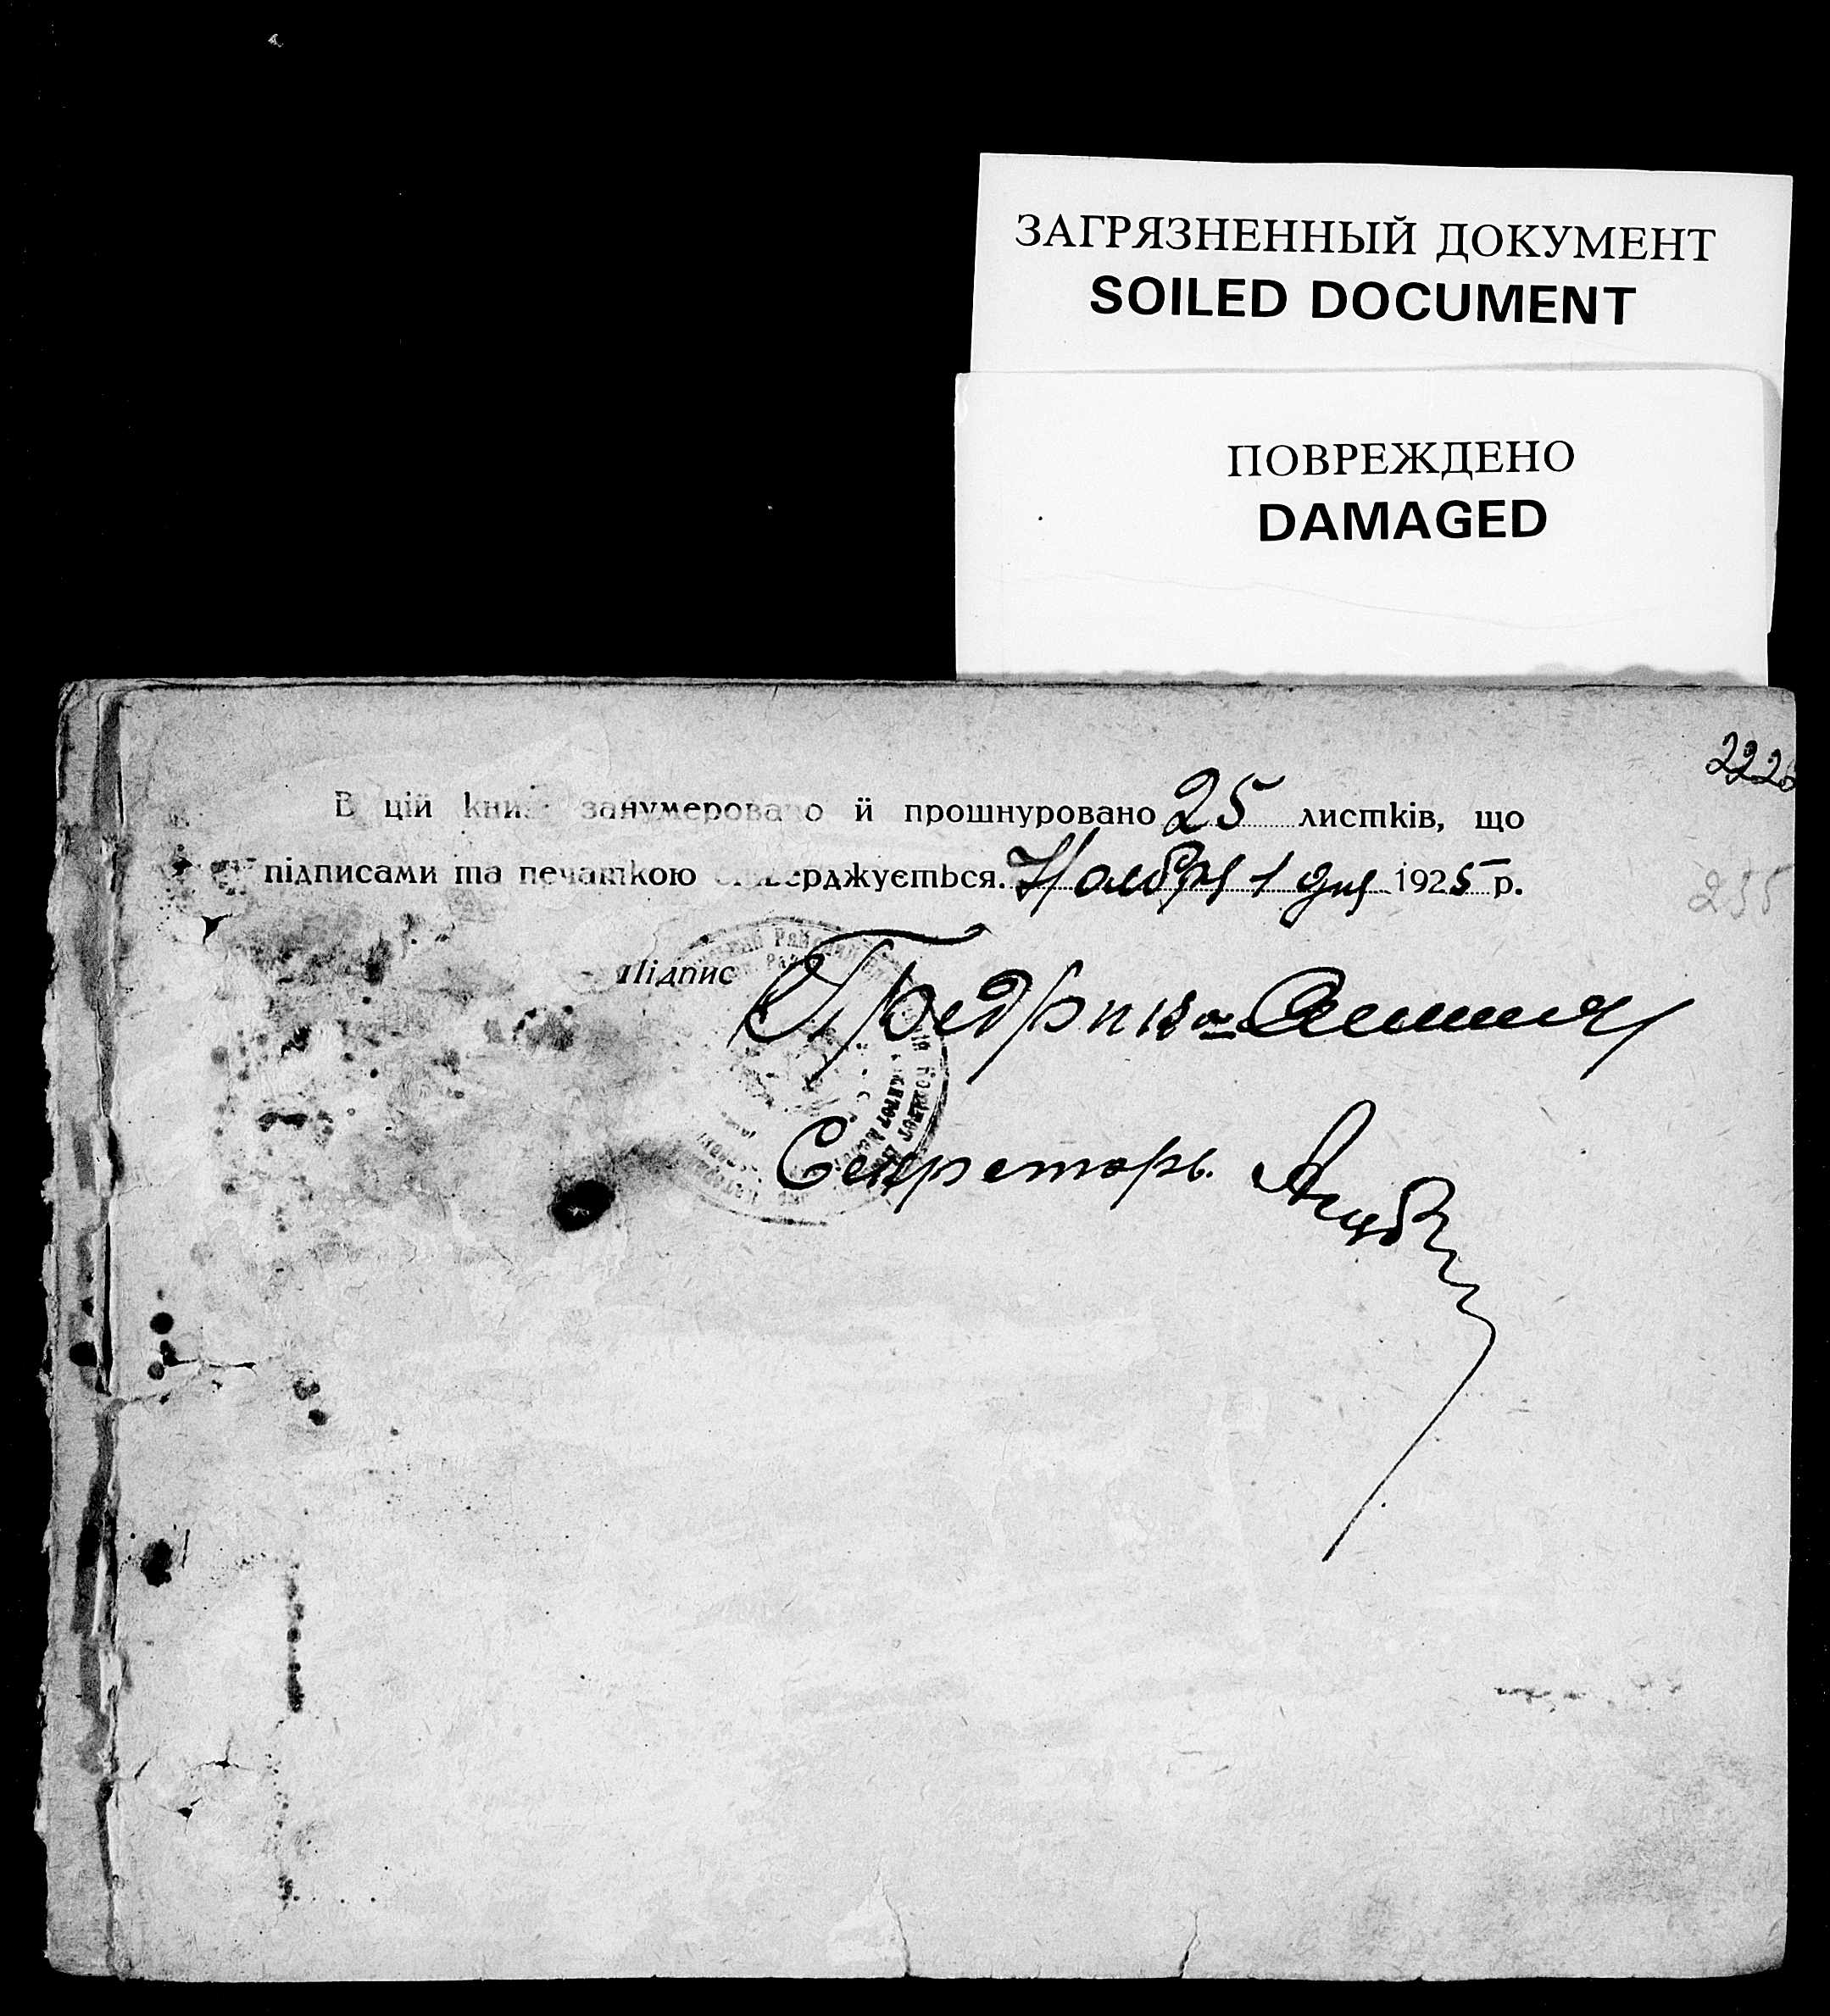 ЗАГРЯЗНЕННЫЙ ДОКУМЕНТ
SOILED DOCUMENT
ПОВРЕЖДЕНО
DAMAGED
222
В цій книзі занумеровано й прошнуровано 25 листків, що
підписами та печаткою стверджується. Ноября 1 дня 1925 р.
255
Підпис
Секретарь